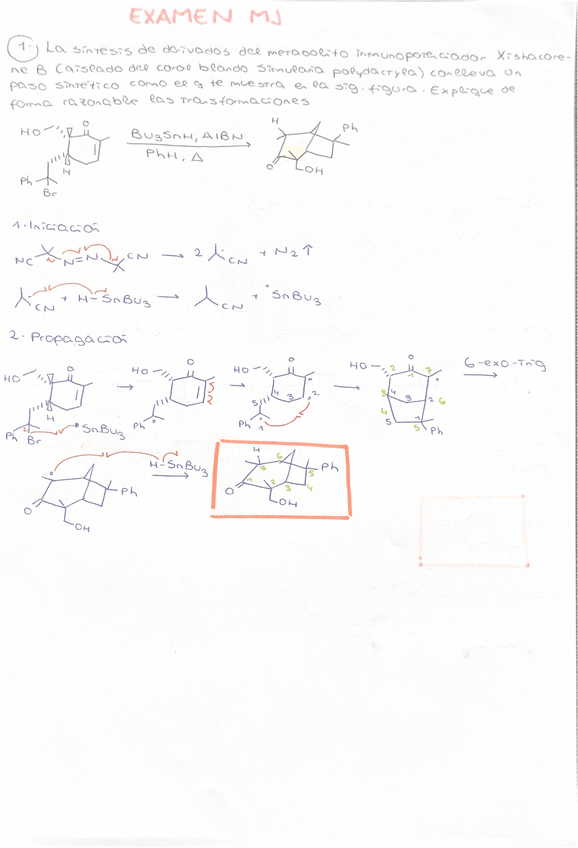 EXAMEN MJ
1. La síntesis de derivados del metabolito inmunopotenciador Xishacore-
ne B (aislado del coral blando Sinularia polydactyla) conlleva un
paso sintético como el q te muestra en la sig. figura. Explique de
forma razonable las transformaciones
HO O H Ph Br
Bu3SnH, AIBN
PhH, Δ
H Ph O OH
1. Iniciación
NC N=N CN → 2 CN + N2↑
CN + H-SnBu3 → CN + •SnBu3
2. Propagación
HO O H Ph Br •SnBu3 → HO O Ph → HO O 5 4 3 2 Ph 1 → HO 2 O 1 7 3 4 3 2 6 4 5 1 5 Ph 6-exo-trig
O OH Ph H-SnBu3 → H 7 6 Ph 5 O 1 2 3 4 OH